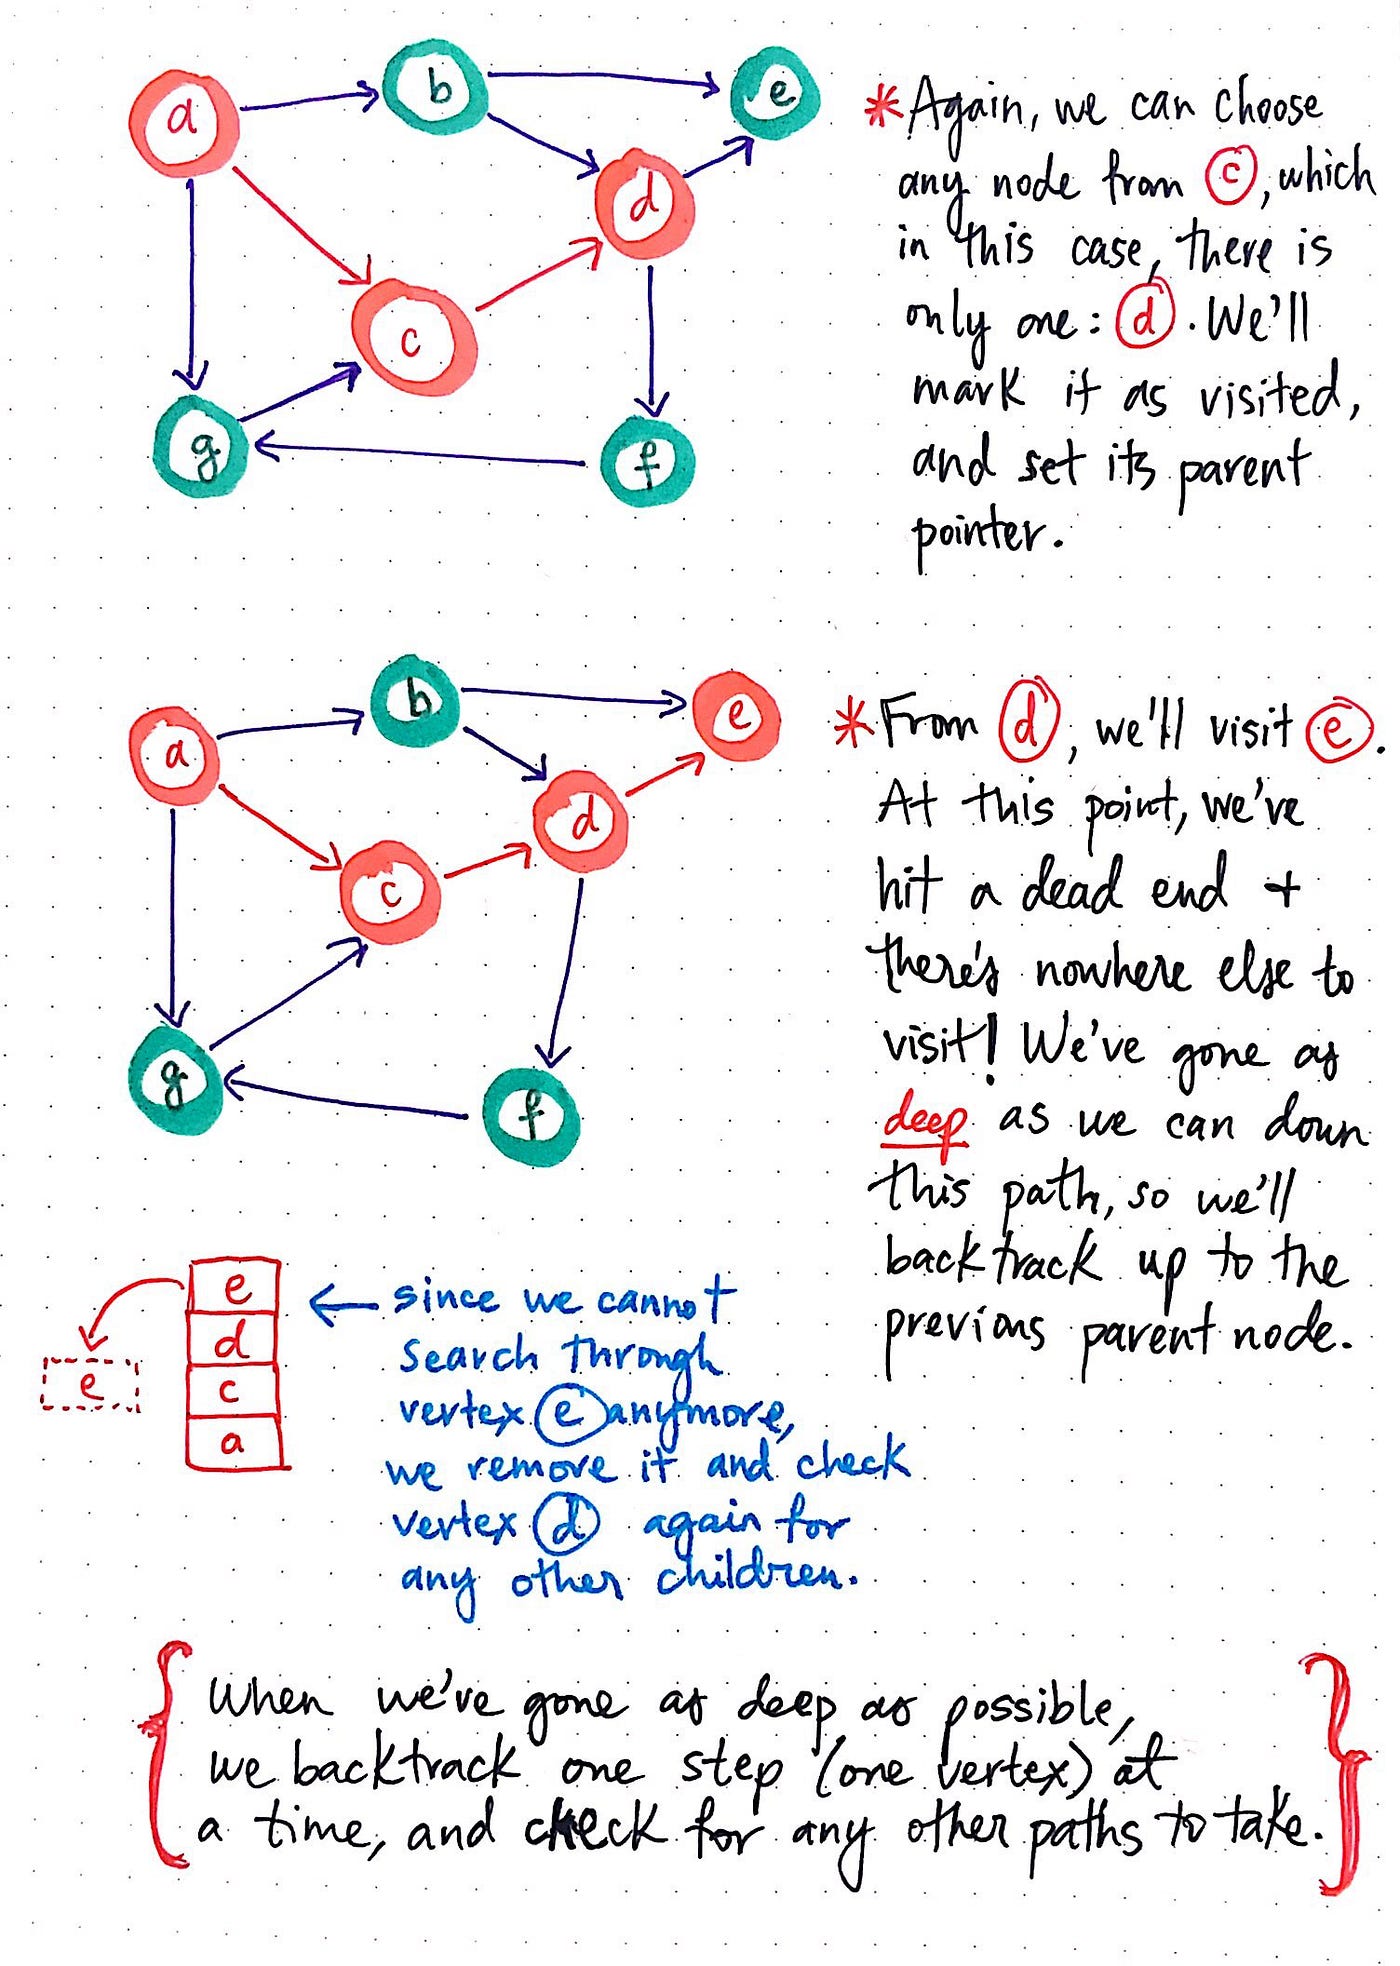 a
b
e
d
c
g
f
*Again, we can choose
any node from c, which
in this case, there is
only one: d. We'll
mark it as visited,
and set its parent
pointer.
a
b
e
d
c
g
f
*From d, we'll visit e.
At this point, we've
hit a dead end +
there's nowhere else to
visit! We've gone as
deep as we can down
this path, so we'll
backtrack up to the
previous parent node.
e
d
c
a
e
← since we cannot
search through
vertex e anymore,
we remove it and check
vertex d again for
any other children.
{ When we've gone as deep as possible,
we backtrack one step (one vertex) at
a time, and check for any other paths to take. }